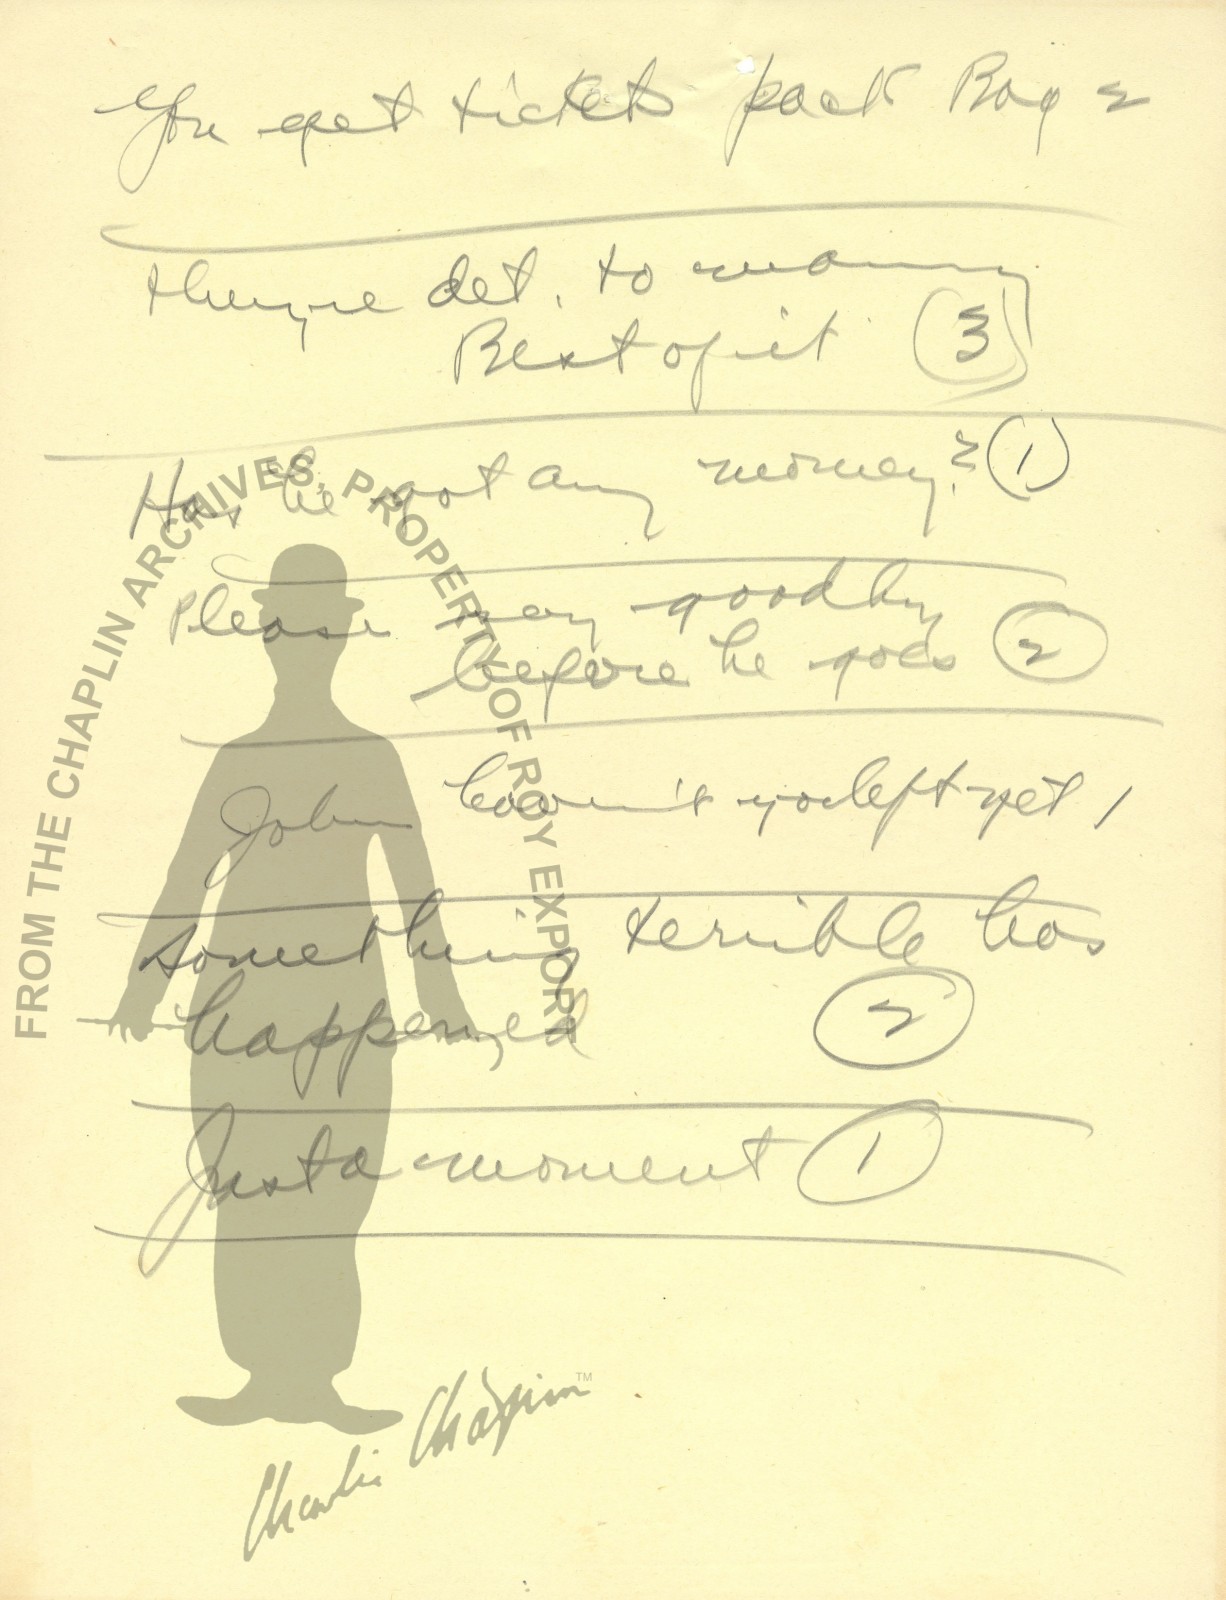 You get tickets pack Bag 2
they're det. to many
Best of it 3
Has he got any money? 2 1
Please say goodby
before he goes 2
John haven't you left yet 1
something terrible has
happened 2
Just a moment 1
FROM THE CHAPLIN ARCHIVES, PROPERTY OF ROY EXPORT
Charlie Chaplin TM